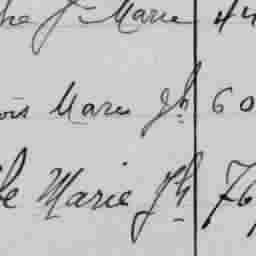 he J Marie 44
ois Marie Jh 60
fe Marie Jh 76